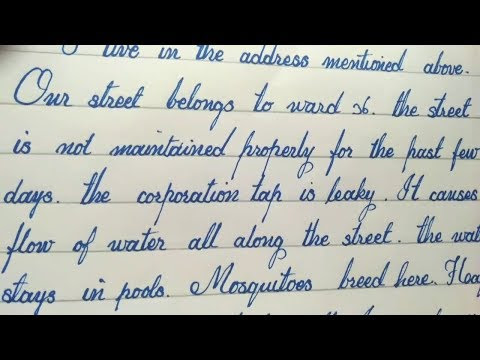 I live in the address mentioned above.
Our street belongs to ward 36. the street
is not maintained properly for the past few
days. the corporation tap is leaky. It causes
flow of water all along the street. the
stays in pools. Mosquitoes breed here.